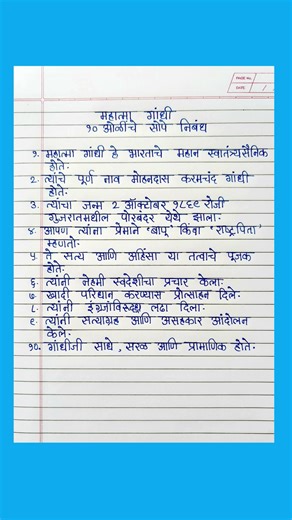 PAGE No.
DATE
महात्मा गांधी
१० ओळींचे सोपे निबंध
१. महात्मा गांधी हे भारताचे महान स्वातंत्र्यसैनिक
होते.
२. त्यांचे पूर्ण नाव मोहनदास करमचंद गांधी
होते.
३. त्यांचा जन्म 2 ऑक्टोबर १८६९ रोजी
गुजरातमधील पोरबंदर येथे झाला.
४. आपण त्यांना प्रेमाने 'बापू' किंवा 'राष्ट्रपिता'
म्हणतो.
५. ते सत्य आणि अहिंसा या तत्वाचे पूजक
होते.
६. त्यांनी नेहमी स्वदेशीचा प्रचार केला.
७. खादी परिधान करण्यास प्रोत्साहन दिले.
८. त्यांनी इंग्रजांविरुद्ध लढा दिला.
९. त्यांनी सत्याग्रह आणि असहकार आंदोलन
केले.
१०. गांधीजी साधे, सरळ आणि प्रामाणिक होते.